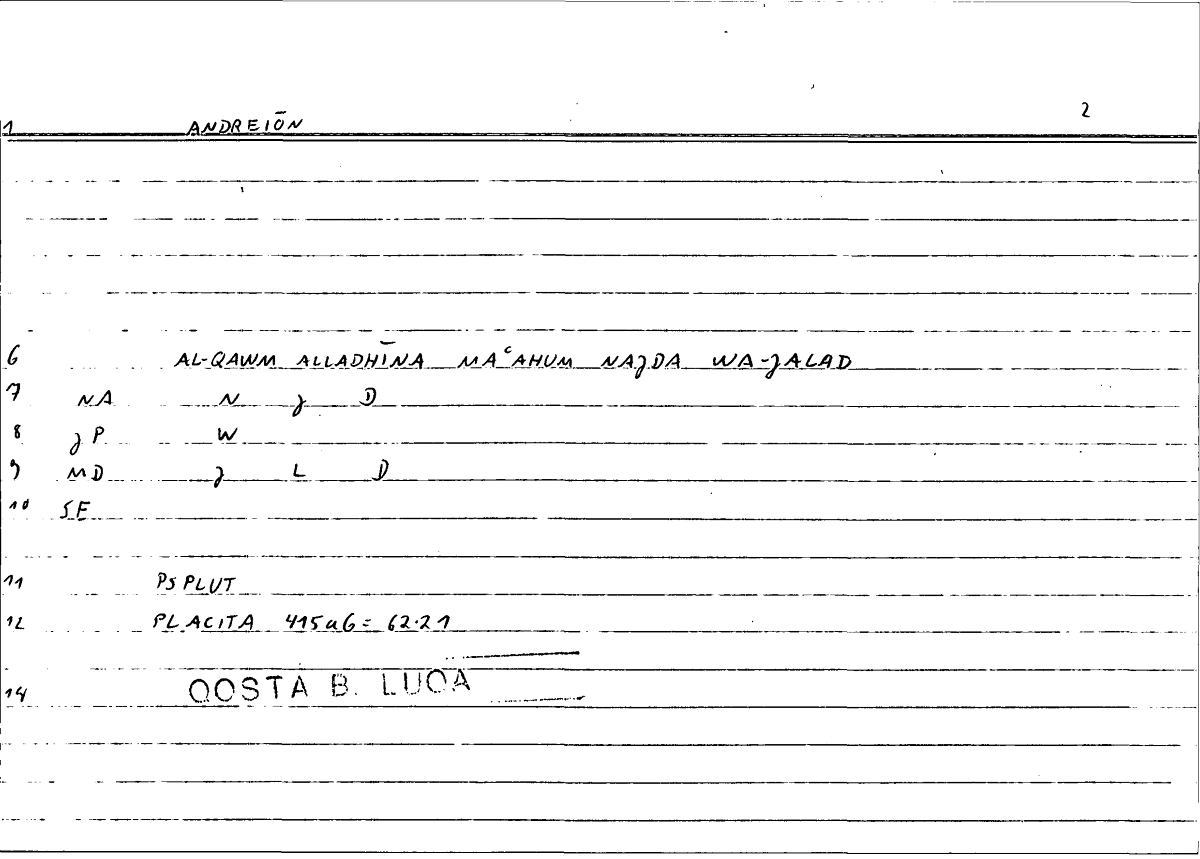 2
1 ANDREIŌN
6 AL-QAWM ALLADHĪNA MAʿAHUM NAJDA WA-JALAD
7 NA N J D
8 JP W
9 MD J L D
10 SE
11 PS PLUT
12 PLACITA 415a6 = 62.21
14 QOSTA B. LUQA